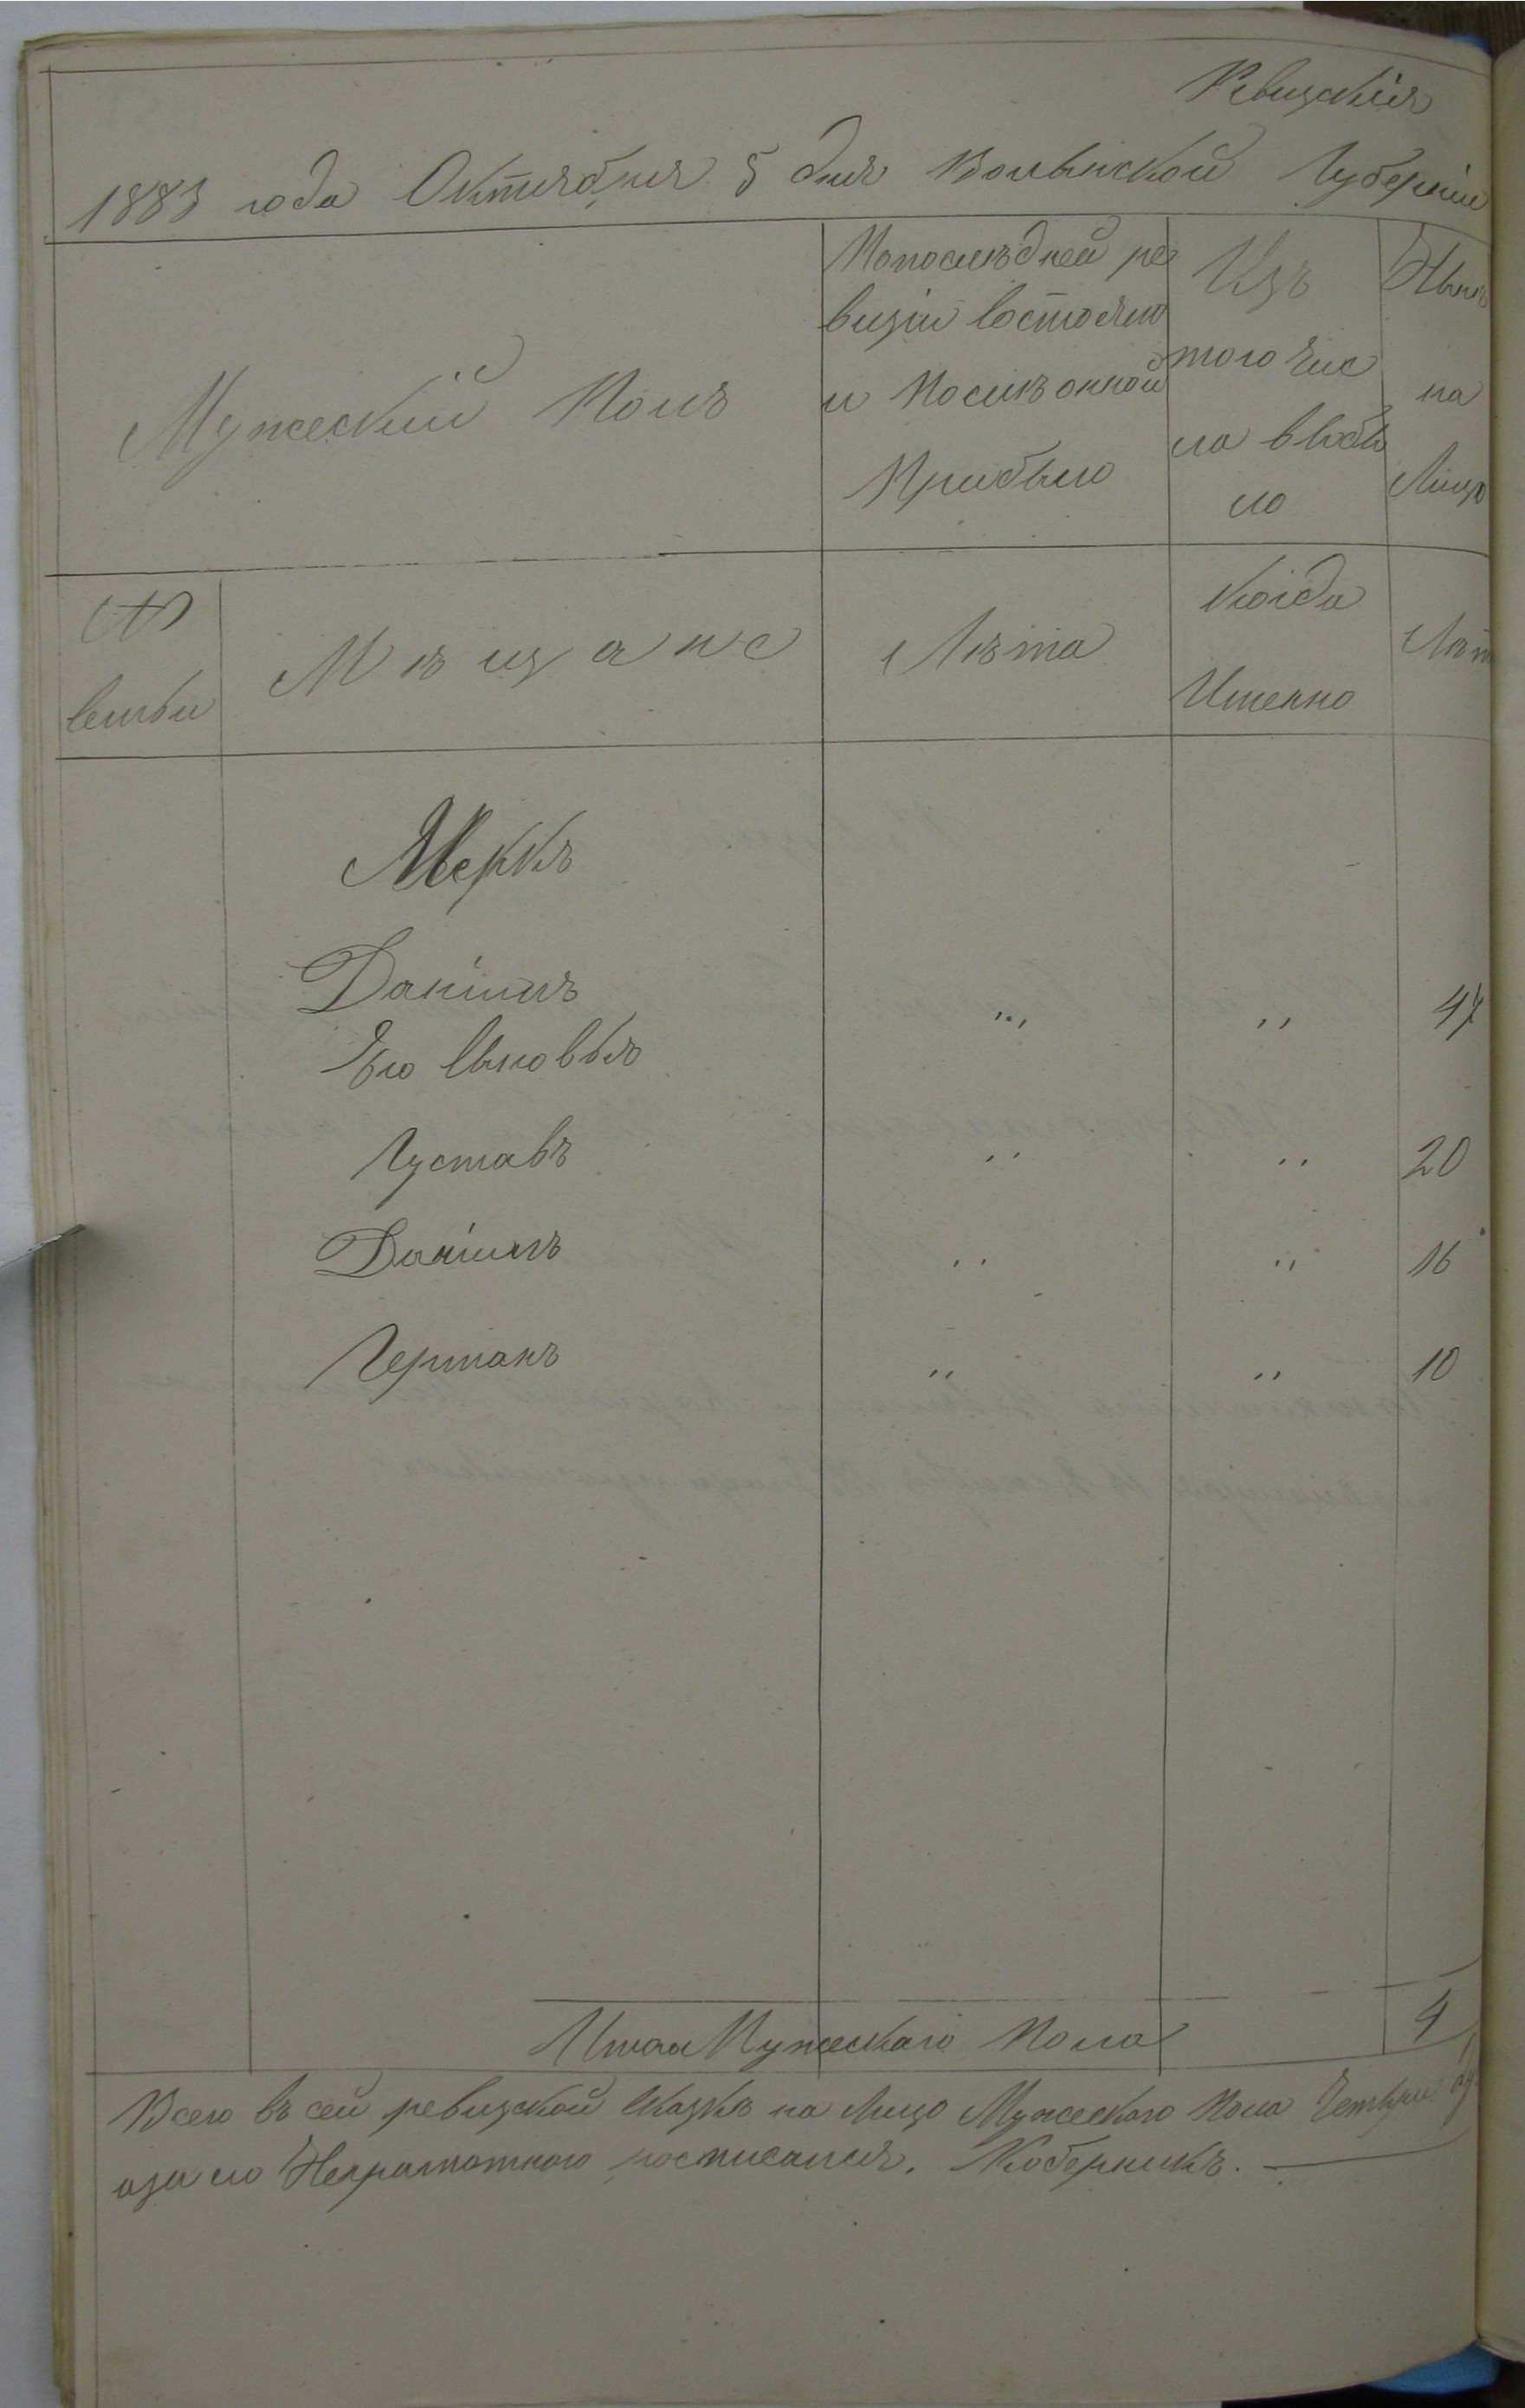 Ревизскія
1883 года Октября 5 дня Волынской Губерніи
Мужескій Полъ
Попослѣдней ре
визіи состояло
и Послѣ онной
Прибыло
Изъ
того чис
ла выбы
ло
Нынѣ
на
Лицо
№
семьи
Мѣщане
Лѣта
Когда
Именно
Лѣт
Меркъ
Даніилъ ,, ,, 47
Его Сыновья
Густавъ ,, ,, 20
Даніилъ ,, ,, 16
Германъ ,, ,, 10
Итого Мужескаго Пола 4
Всего въ сей ревизской Сказкѣ на Лицо Мужескаго Пола Четыре
аза его Неграмотнаго росписался. Коберникъ.